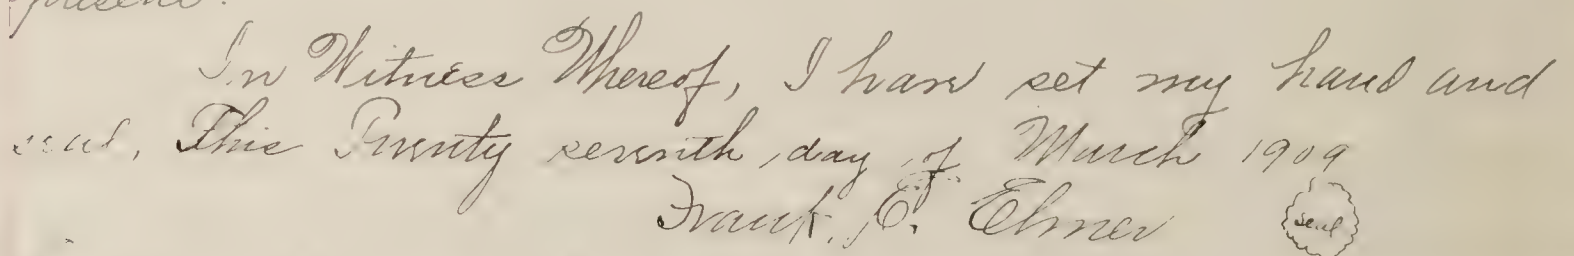 present.
In Witness Whereof, I have set my hand and
seal, This Twenty seventh, day of March 1909
Frank. C. Elmer seal